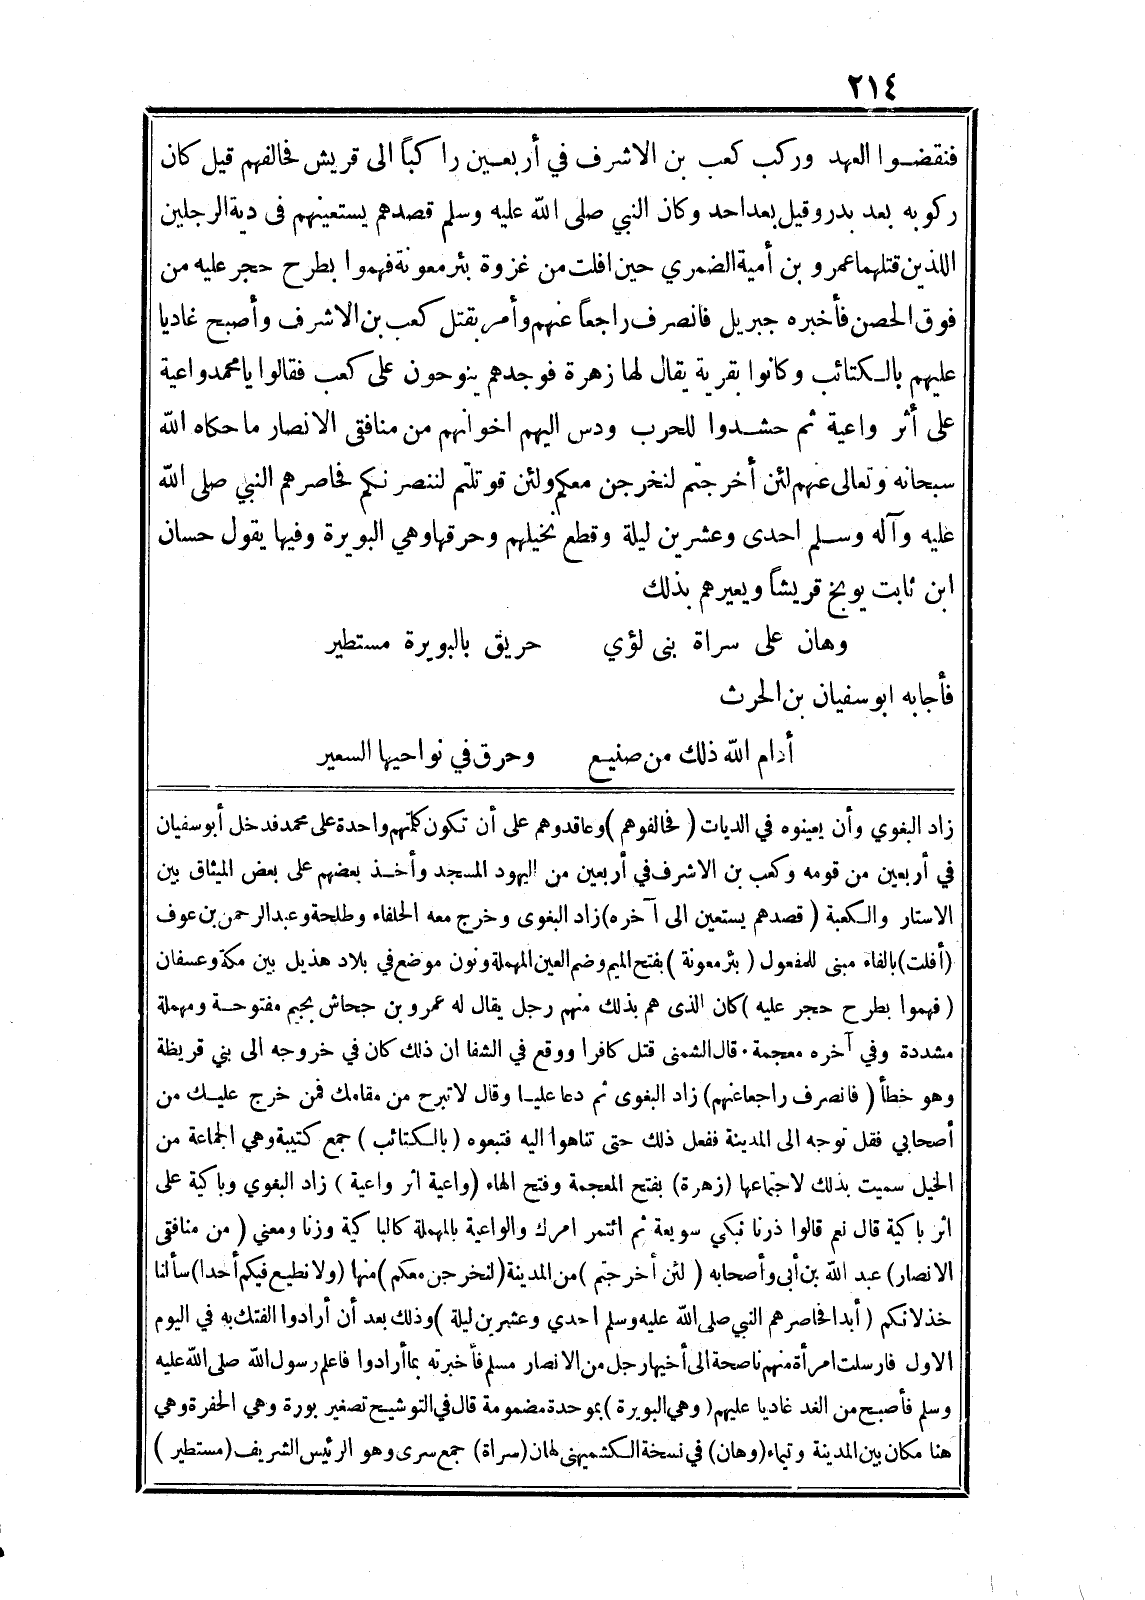 ٢١٤
فنقضوا العهد وركب كعب بن الاشرف في أربعين راكباً الى قريش فحالفهم قيل كان
ركوبه بعد بدر وقيل بعد احد وكان النبي صلى الله عليه وسلم قصدهم يستعينهم فى دية الرجلين
اللذين قتلهما عمرو بن أمية الضمري حين افلت من غزوة بئر معونة فهموا بطرح حجر عليه من
فوق الحصن فأخبره جبريل فانصرف راجعاً عنهم وأمر بقتل كعب بن الاشرف وأصبح غاديا
عليهم بالكتائب وكانوا بقرية يقال لها زهرة فوجدهم ينوحون على كعب فقالوا يا محمد واعية
على أثر واعية ثم حشدوا للحرب ودس اليهم اخوانهم من منافقى الانصار ما حكاه الله
سبحانه وتعالى عنهم لئن أخرجتم لنخرجن معكم ولئن قوتلتم لننصرنكم فحاصرهم النبي صلى الله
عليه وآله وسلم احدى وعشرين ليلة وقطع نخيلهم وحرقها وهي البويرة وفيها يقول حسان
ابن ثابت يوبخ قريشاً ويعيرهم بذلك
وهان على سراة بنى لؤي حريق بالبويرة مستطير
فأجابه ابو سفيان بن الحرث
أدام الله ذلك من صنيع وحرق في نواحيها السعير
زاد البغوي وأن يعينوه في الديات ( فحالفوهم ) وعاقدوهم على أن تكون كلمتهم واحدة على محمد فدخل أبو سفيان
في أربعين من قومه وكعب بن الاشرف في أربعين من اليهود المسجد وأخذ بعضهم على بعض الميثاق بين
الاستار والكعبة ( قصدهم يستعين الى آخره) زاد البغوى وخرج معه الخلفاء وطلحة وعبد الرحمن بن عوف
(أفلت) بالفاء مبنى للمفعول ( بئر معونة ) بفتح الميم وضم العين المهملة ونون موضع في بلاد هذيل بين مكة وعسفان
( فهموا بطرح حجر عليه ) كان الذى هم بذلك منهم رجل يقال له عمرو بن جحاش بجيم مفتوحة ومهملة
مشددة وفي آخره معجمة ٠ قال الشمنى قتل كافرا ووقع في الشفا ان ذلك كان في خروجه الى بني قريظة
وهو خطأ ( فانصرف راجعا عنهم) زاد البغوى ثم دعا عليا وقال لا تبرح من مقامك فمن خرج عليك من
أصحابي فقل توجه الى المدينة ففعل ذلك حتى تناهوا اليه فتبعوه ( بالكتائب ) جمع كتيبة وهي الجماعة من
الخيل سميت بذلك لاجتماعها (زهرة) بفتح المعجمة وفتح الهاء (واعية اثر واعية ) زاد البغوي وباكية على
اثر باكية قال نعم قالوا ذرنا نبكي سويعة ثم ائتمر امرك والواعية بالمهملة كالباكية وزنا ومعني ( من منافقى
الانصار) عبد الله بن أبى وأصحابه ( لئن أخرجتم ) من المدينة (لنخرجن معكم ) منها (ولا نطيع فيكم أحدا) سألنا
خذلانكم ( أبدا فحاصرهم النبي صلى الله عليه وسلم احدي وعشرين ليلة ) وذلك بعد أن أرادوا الفتك به في اليوم
الاول فارسلت امرأة منهم ناصحة الى أخيها رجل من الانصار مسلم فأخبرته بما أرادوا فاعلم رسول الله صلى الله عليه
وسلم فأصبح من الغد غاديا عليهم ( وهي البويرة ) بموحدة مضمومة قال في التوشيح تصغير بورة وهي الحفرة وهي
هنا مكان بين المدينة وتيماء (وهان) في نسخة الكشميهنى لهان (سراة) جمع سرى وهو الرئيس الشريف (مستطير )